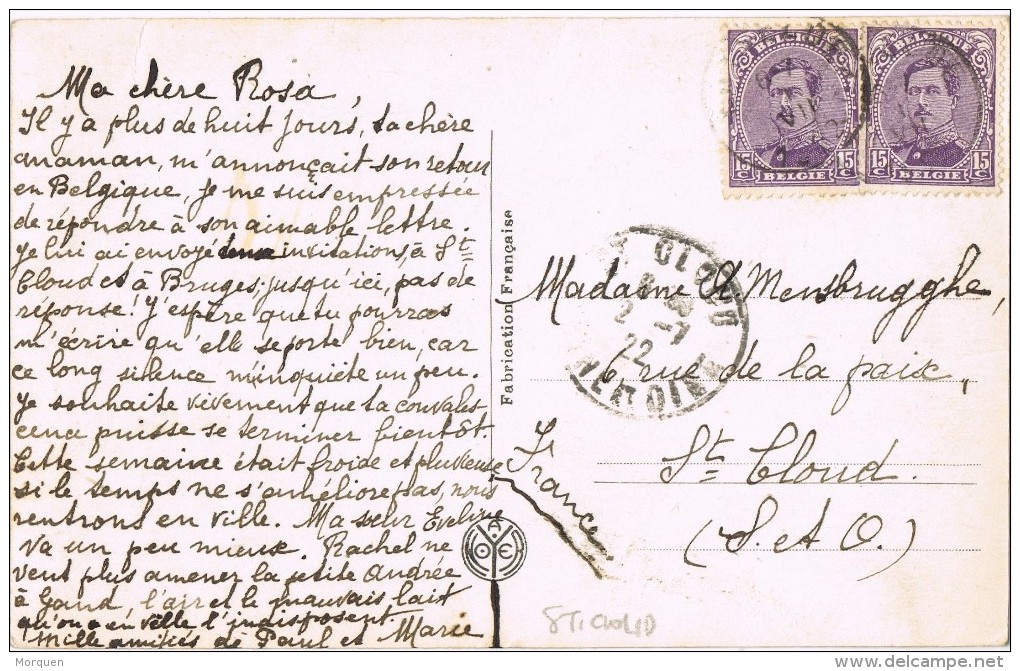 Ma chère Rosa,
Il y a plus de huit jours, ta chère
maman, m'annonçait son retour
en Belgique, je me suis empressée
de répondre à son aimable lettre.
Je lui ai envoyé deux invitations, à St
Cloud et à Bruges; jusqu'ici, pas de
réponse! J'espère que tu pourras
m'écrire qu'elle se porte bien, car
ce long silence m'inquiète un peu.
Je souhaite vivement que ta convales-
cence puisse se terminer bientôt.
Cette semaine était froide et pluvieuse
si le temps ne s'améliore pas, nous
rentrons en ville. Ma sœur Eveline
va un peu mieux. Rachel ne
veut plus amener la petite Andrée
à Gand, l'air et le mauvais lait
qu'on a en ville l'indisposent.
Mille amitiés de Paul et Marie
Fabrication Française
BELGIQUE
15 C 15 C
BELGIE
BELGIQUE
15 C 15 C
BELGIE
CLOUD
2 -7
22
Madame Mensbrugghe,
6 rue de la paix,
St Cloud.
(S. et O.)
France
ST. CLOUD
Morquen
www.delcampe.net